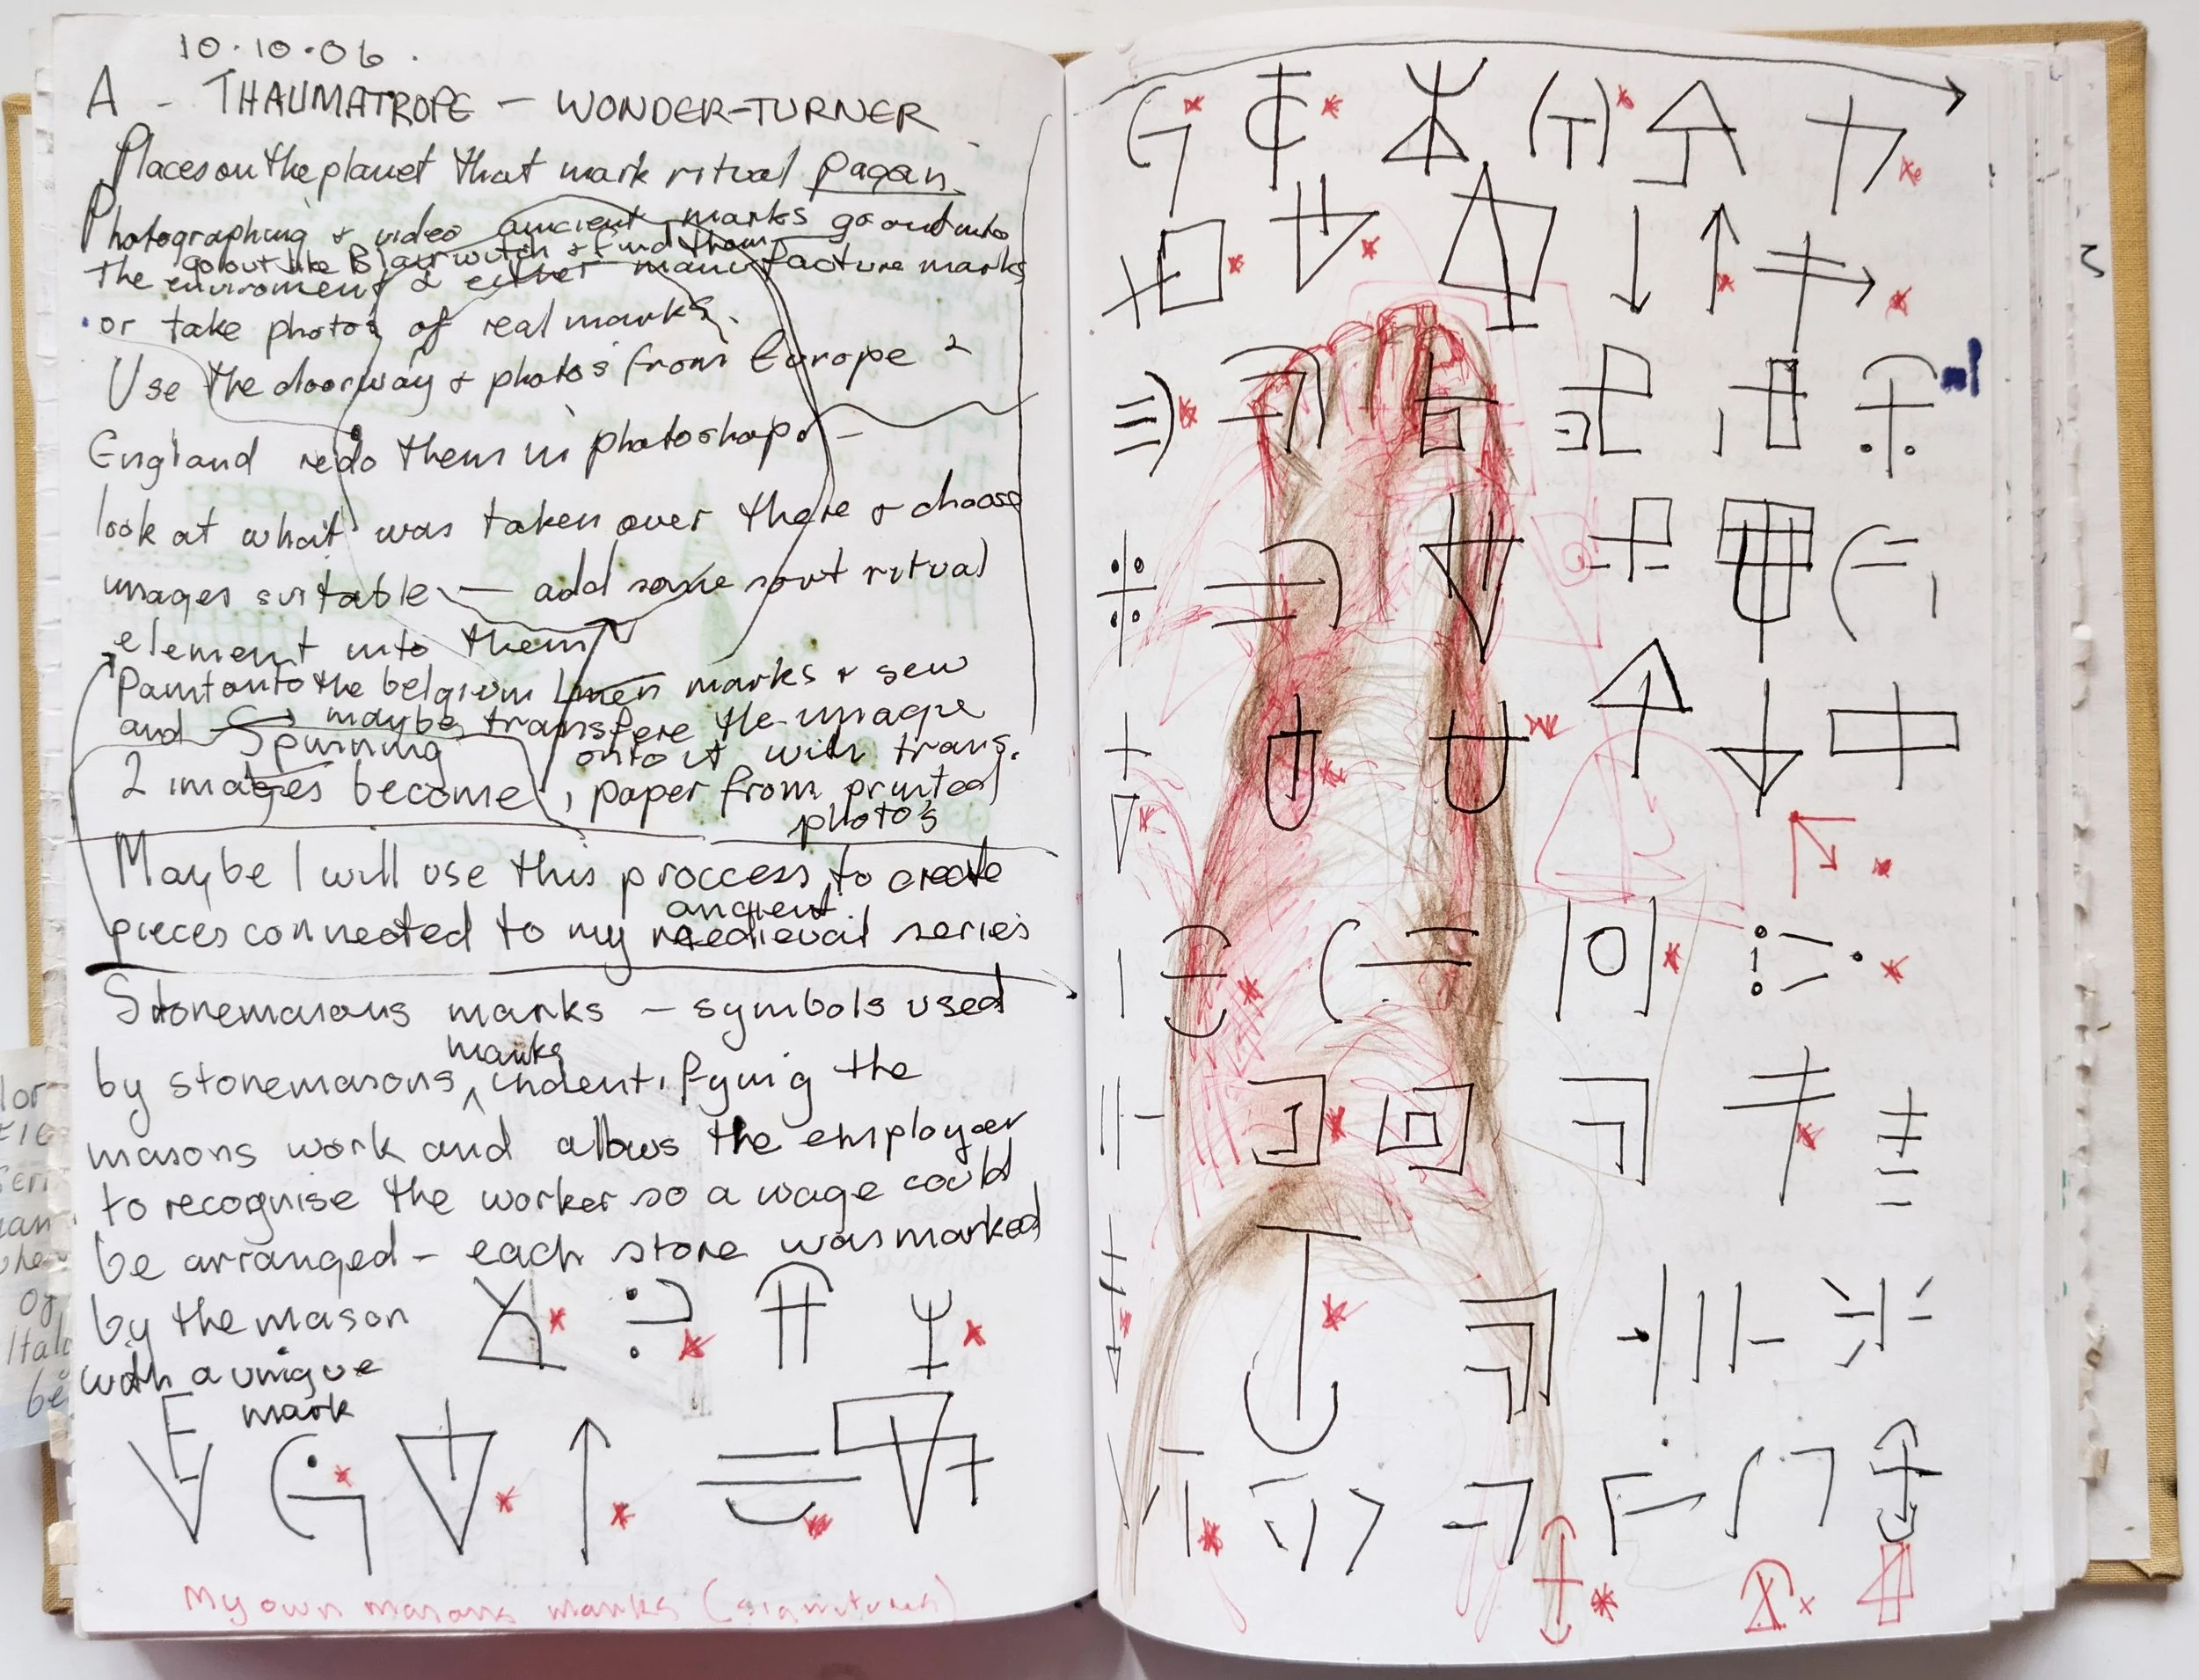 10.10.06.
A - THAUMATROPE - WONDER-TURNER
Places on the planet that mark ritual pagan.
Photographing & video ancient marks go out into
go out like Blairwitch & find them
the enviroment & either manufacture marks
or take photos of real marks.
Use the doorway & photos from Europe
England redo them in photoshop -
look at what was taken over there & choose
images suitable - add some sort ritual
element into them
Paint onto the belgium linen marks & sew
and maybe transfere the image
Spinning onto it with trans.
2 images become 1, paper from printed
photo's
Maybe I will use this proccess to create
ancient
pieces connected to my medieval series
Stonemasons marks - symbols used
marks
by stonemasons, indentifying the
masons work and allows the employer
to recognise the worker so a wage could
be arranged - each stone was marked
by the mason
with a unique
mark
My own masons marks (signitures)